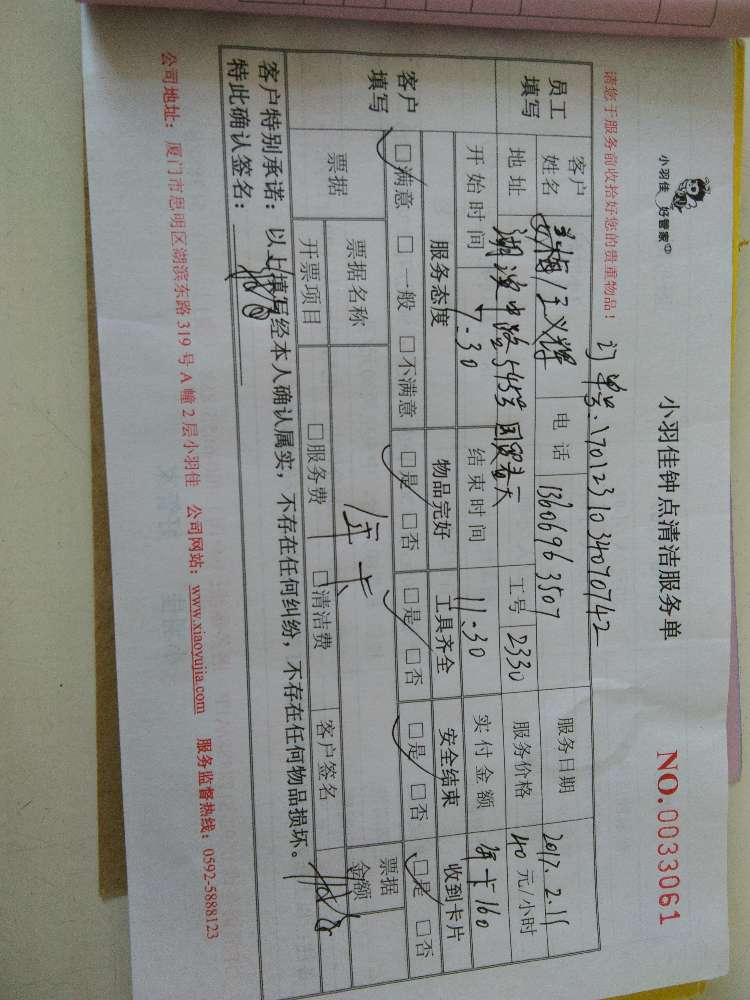 小羽佳 好管家
小羽佳钟点清洁服务单
NO.0033061
请您于服务前收拾好您的贵重物品！
订单号:1701231034070742
员工填写
客户姓名 王义辉 电话 13606963507 工号 2330 服务日期 2017.2.11
地址 湖滨中路 服务价格 40元/小时
开始时间 7.30 结束时间 11.30 实付金额 年卡160
客户填写
服务态度 物品完好 工具齐全 安全结束 收到卡片
□满意 □一般 □不满意 □是 □否 □是 □否 □是 □否 □是 □否
票据 票据名称 年卡 票据金额
开票项目 □服务费 □清洁费 客户签名
客户特别承诺：以上填写经本人确认属实，不存在任何纠纷，不存在任何物品损坏。
特此确认签名：
公司地址：厦门市思明区湖滨东路319号A幢2层小羽佳 公司网站：www.xiaoyujia.com 服务监督热线：0592-5888123